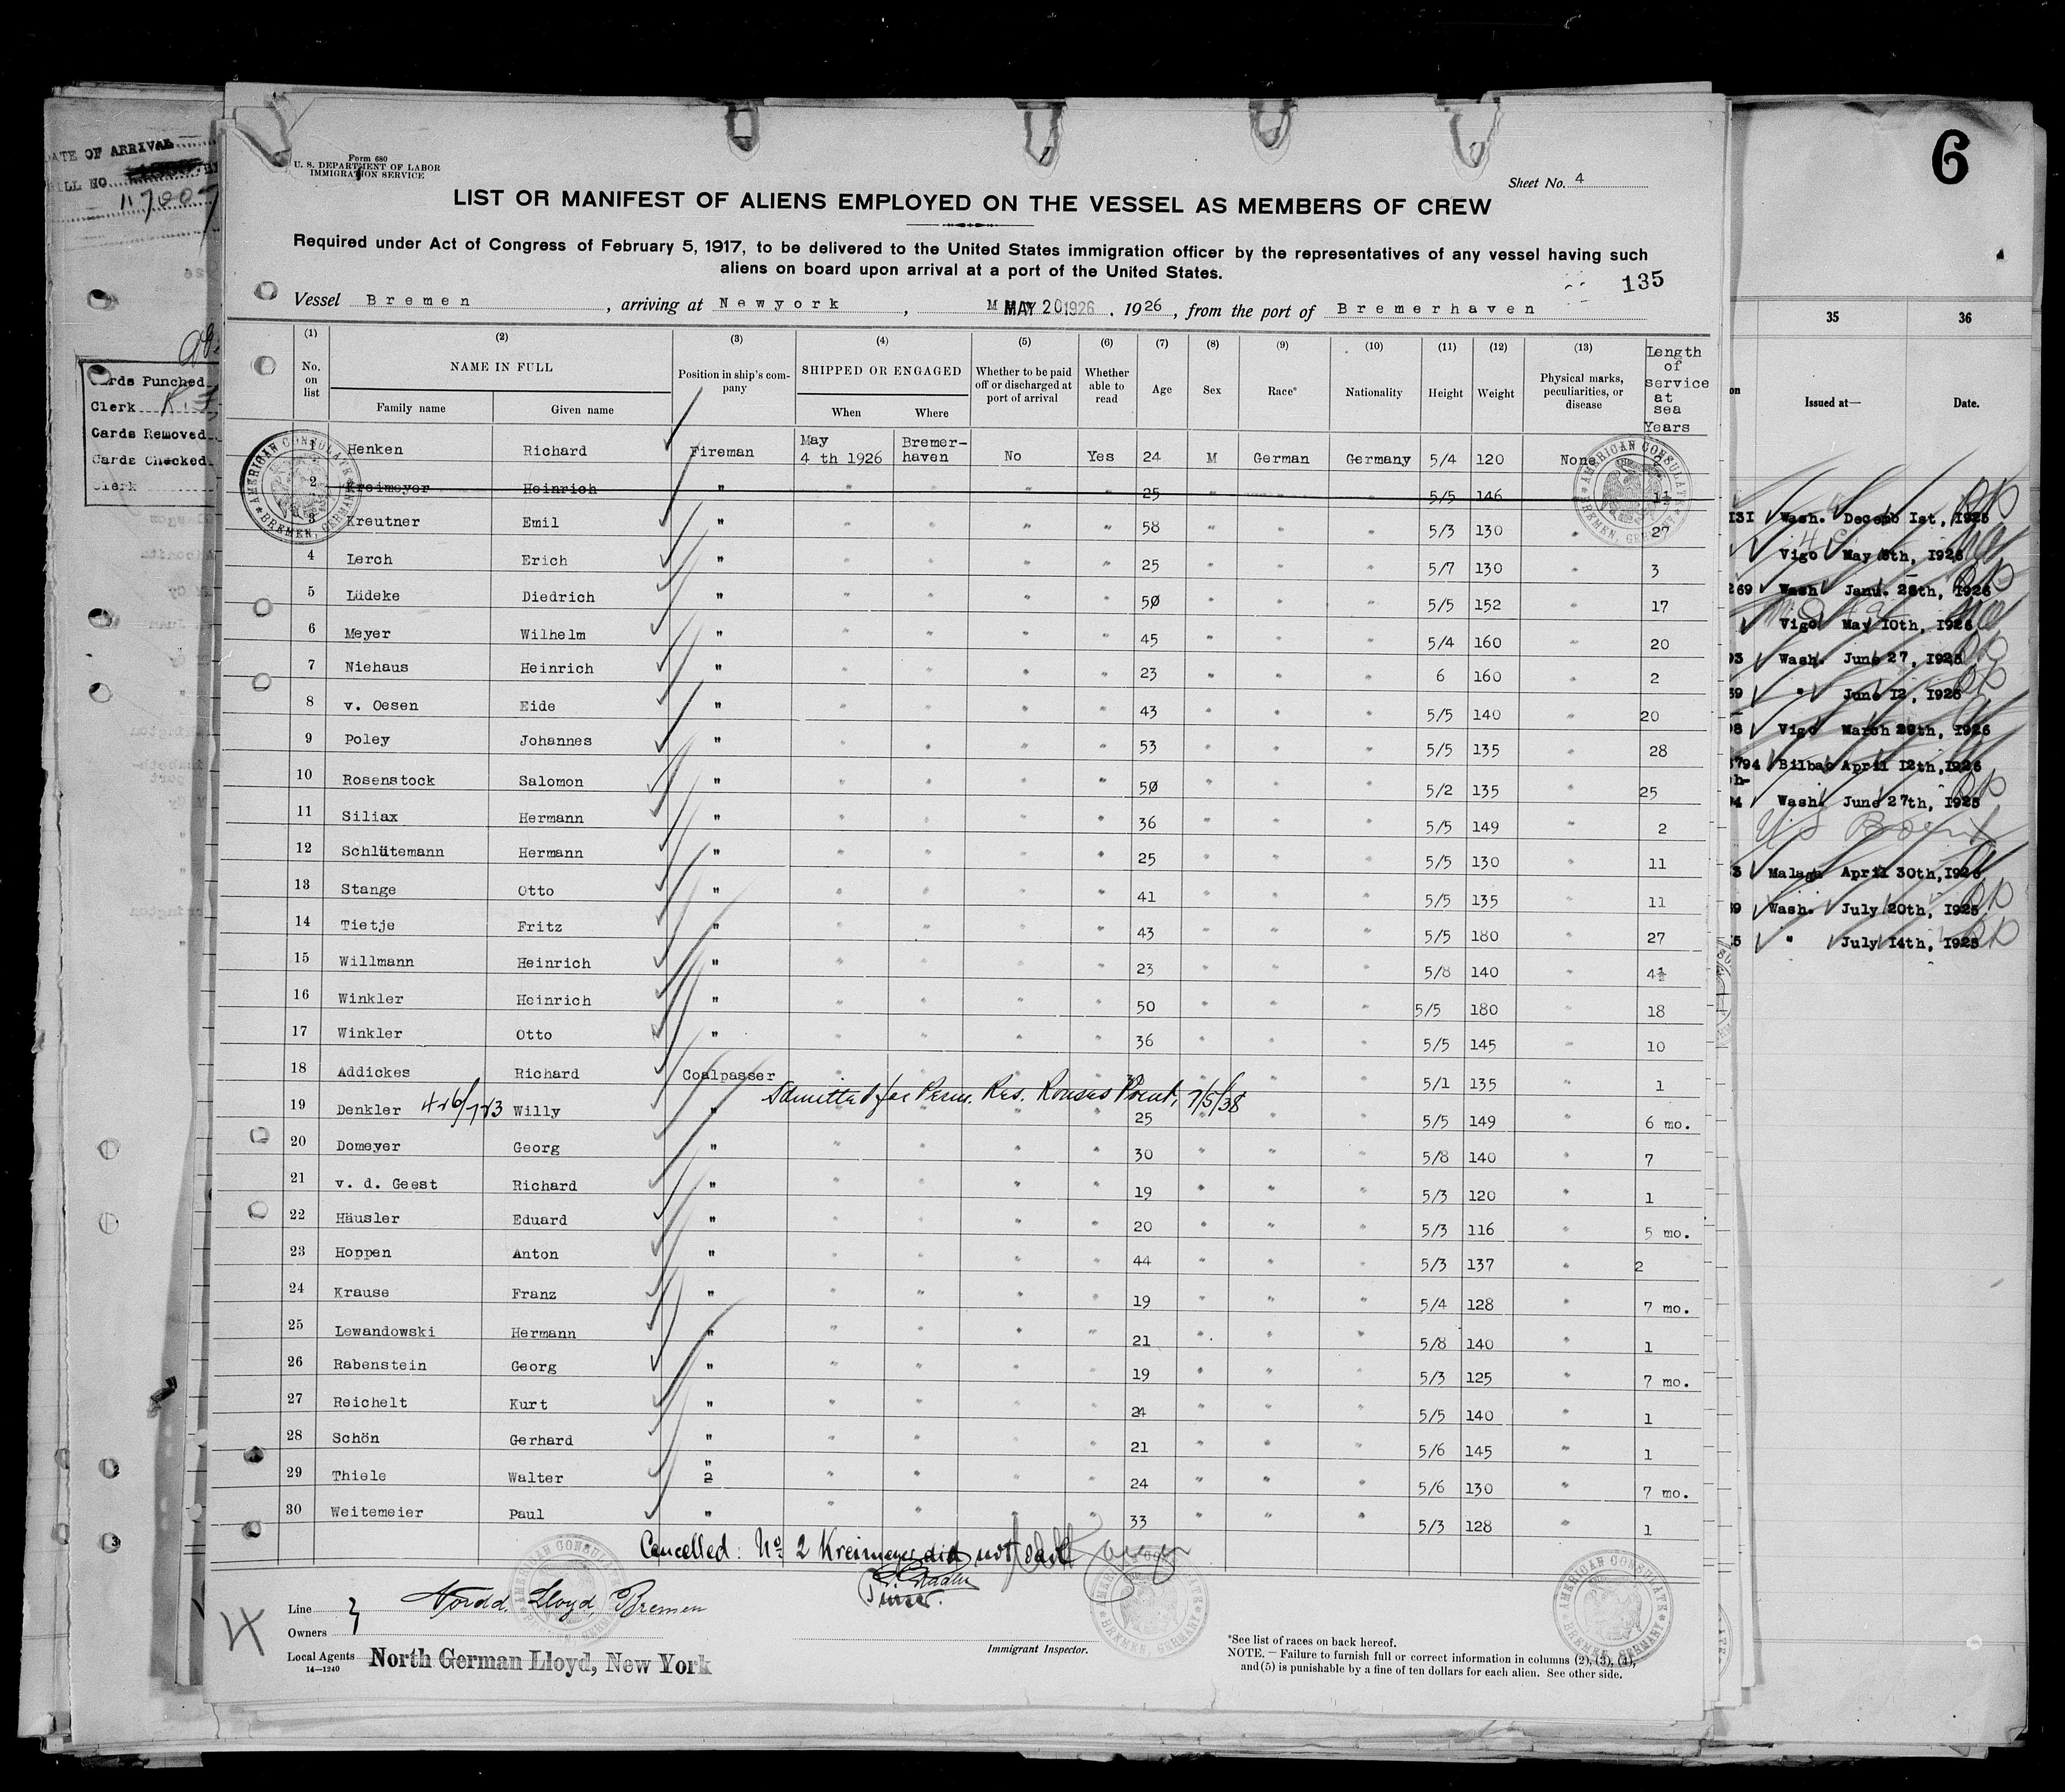 Form 680
U. S. DEPARTMENT OF LABOR
IMMIGRATION SERVICE
Sheet No. 4
6
LIST OR MANIFEST OF ALIENS EMPLOYED ON THE VESSEL AS MEMBERS OF CREW
Required under Act of Congress of February 5, 1917, to be delivered to the United States immigration officer by the representatives of any vessel having such
aliens on board upon arrival at a port of the United States.
135
Vessel Bremen, arriving at Newyork, MAY 20 1926, 1926, from the port of Bremerhaven
(1) (2) (3) (4) (5) (6) (7) (8) (9) (10) (11) (12) (13)
No. on list NAME IN FULL Family name Given name Position in ship's company SHIPPED OR ENGAGED When Where Whether to be paid off or discharged at port of arrival Whether able to read Age Sex Race* Nationality Height Weight Physical marks, peculiarities, or disease Length of service at sea Years
1 Henken Richard Fireman May 4 th 1926 Bremerhaven No Yes 24 M German Germany 5/4 120 None
2 Kreimeyer Heinrich " " " " " 25 " " " 5/5 146
3 Kreutner Emil " " " " " 58 " " " 5/3 130 " 27
4 Lerch Erich " " " " " 25 " " " 5/7 130 " 3
5 Lüdeke Diedrich " " " " " 50 " " " 5/5 152 " 17
6 Meyer Wilhelm " " " " " 45 " " " 5/4 160 " 20
7 Niehaus Heinrich " " " " " 23 " " " 6 160 " 2
8 v. Oesen Eide " " " " " 43 " " " 5/5 140 " 20
9 Poley Johannes " " " " " 53 " " " 5/5 135 " 28
10 Rosenstock Salomon " " " " " 50 " " " 5/2 135 " 25
11 Siliax Hermann " " " " " 36 " " " 5/5 149 " 2
12 Schlütemann Hermann " " " " " 25 " " " 5/5 130 " 11
13 Stange Otto " " " " " 41 " " " 5/5 135 " 11
14 Tietje Fritz " " " " " 43 " " " 5/5 180 " 27
15 Willmann Heinrich " " " " " 23 " " " 5/8 140 " 4½
16 Winkler Heinrich " " " " " 50 " " " 5/5 180 " 18
17 Winkler Otto " " " " " 36 " " " 5/5 145 " 10
18 Addickes Richard Coalpasser " " " " " " " 5/1 135 " 1
Admitted for Perm. Res. Rouses Point, 7/5/38
19 Denkler Willy " " " " " 25 " " " 5/5 149 " 6 mo.
20 Domeyer Georg " " " " " 30 " " " 5/8 140 " 7
21 v. d. Geest Richard " " " " " 19 " " " 5/3 120 " 1
22 Häusler Eduard " " " " " 20 " " " 5/3 116 " 5 mo.
23 Hoppen Anton " " " " " 44 " " " 5/3 137 " 2
24 Krause Franz " " " " " 19 " " " 5/4 128 " 7 mo.
25 Lewandowski Hermann " " " " " 21 " " " 5/8 140 " 1
26 Rabenstein Georg " " " " " 19 " " " 5/3 125 " 7 mo.
27 Reichelt Kurt " " " " " 24 " " " 5/5 140 " 1
28 Schön Gerhard " " " " " 21 " " " 5/6 145 " 1
29 Thiele Walter " " " " " 24 " " " 5/6 130 " 7 mo.
30 Weitemeier Paul " " " " " 33 " " " 5/3 128 " 1
Cancelled: No 2 Kreimeyer did not sail
Purser.
4
Line Nordd. Lloyd, Bremen
Owners
Local Agents North German Lloyd, New York
14—1240
Immigrant Inspector.
*See list of races on back hereof.
NOTE. — Failure to furnish full or correct information in columns (2), (3), (4),
and (5) is punishable by a fine of ten dollars for each alien. See other side.
AMERICAN CONSULATE
BREMEN, GERMANY
AMERICAN CONSULATE
BREMEN, GERMANY
AMERICAN CONSULATE
BREMEN, GERMANY
AMERICAN CONSULATE
BREMEN, GERMANY
AMERICAN CONSULATE
BREMEN, GERMANY
DATE OF ARRIVAL
Cards Punched
Clerk
Cards Removed
Cards Checked
Clerk
35 36
Issued at— Date.
Wash. Decemb 1st, 1925
Vigo May 8th, 1926
Wash Janu. 28th, 1926
Vigo May 10th, 1926
Wash. June 27, 1925
" June 12, 1925
Vigo March 29th, 1926
Bilbao April 12th, 1926
Wash. June 27th, 1925
Malaga April 30th, 1926
Wash. July 20th, 1925
" July 14th, 1925